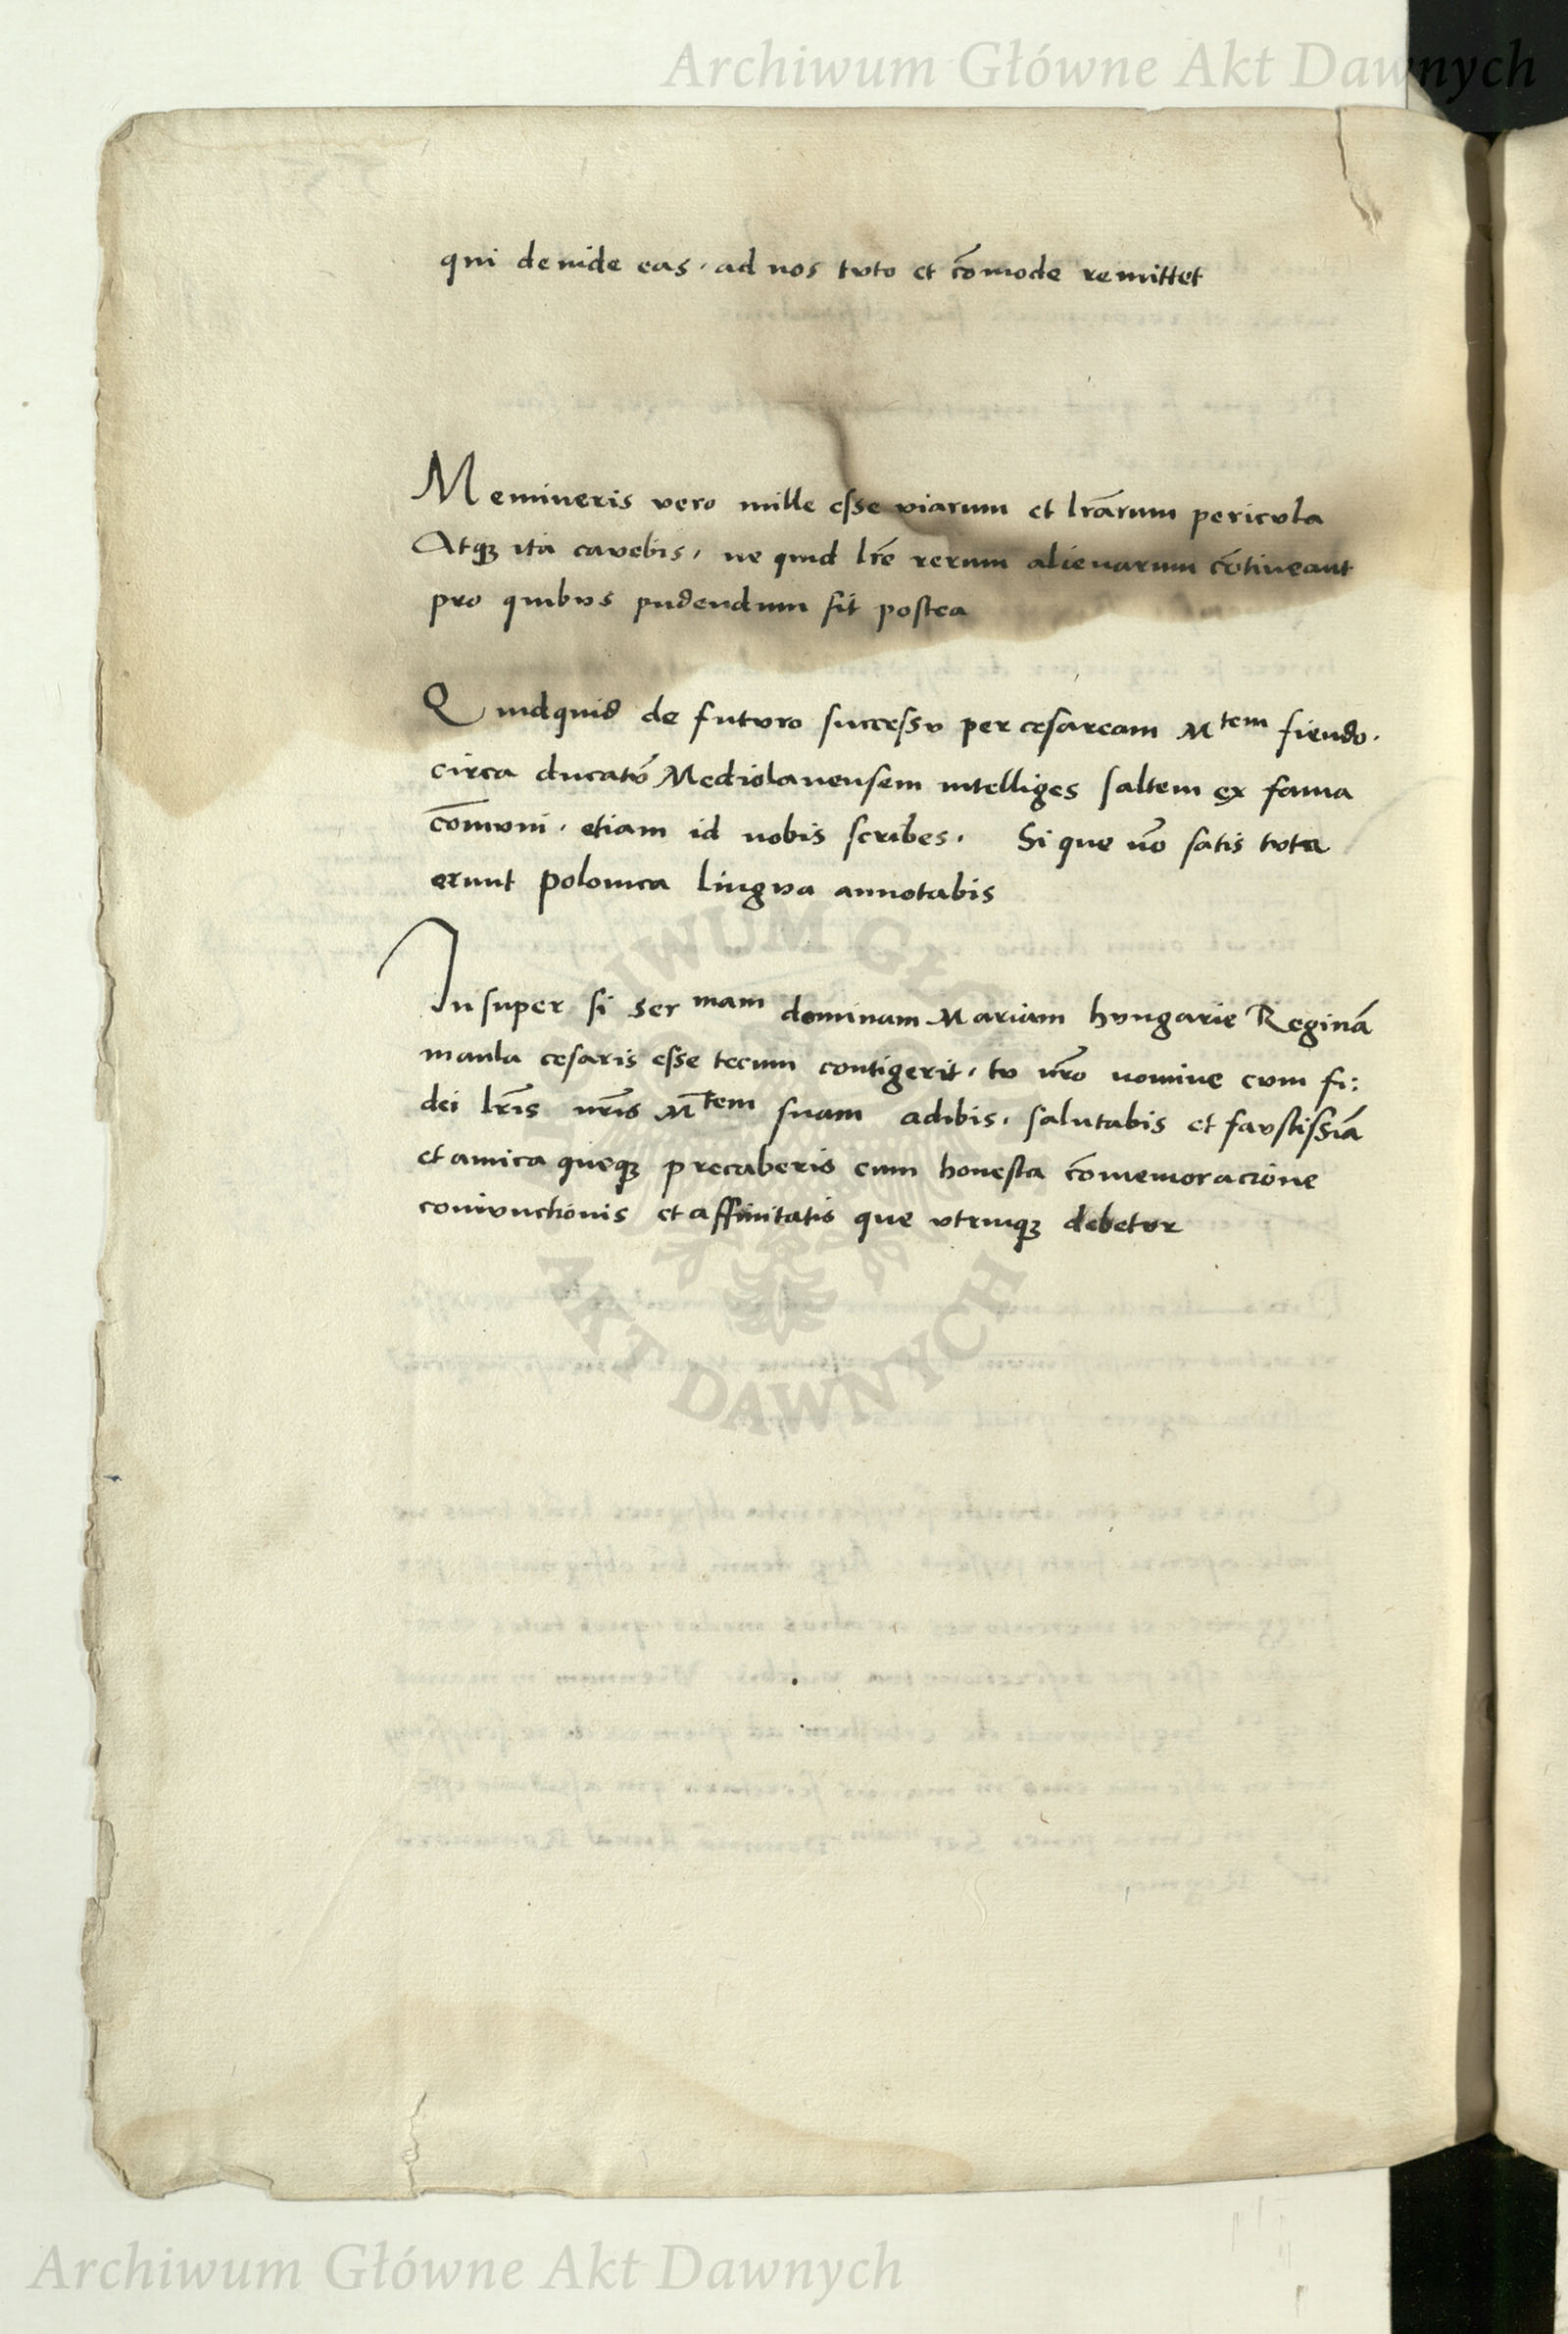 Archiwum Główne Akt Dawnych
qui deinde eas · ad nos tvto et co͞mode remittet
Memineris vero mille esse viarum et lr͞arum pericvla
Atqꝫ ita cavebis, ne quid lr͞e rerum alienarum co͞tineant
pro quibvs pudendum sit postea
Quidquid de futvro successv per cesaream Mtem fiendo ·
circa ducatu͞ Mediolanensem intelliges saltem ex fama
co͞mvni · etiam id nobis scribes · Si que no͞ satis tvta
erunt polonica lingva annotabis
Insuper si sermam dominam Mariam hvngarie Regina͞
in aula cesaris esse tecum contigerit, tv nr͞o nomine cvm fi:
dei lr͞is nr͞is Mtem suam adibis, salutabis et favstissi͞a
et amica queqꝫ precaberis cum honesta co͞memoracione
conivnctionis et affinitatis que vtrinqꝫ debetvr
ARCHIWUM GŁÓWNE
AKT DAWNYCH
Archiwum Główne Akt Dawnych